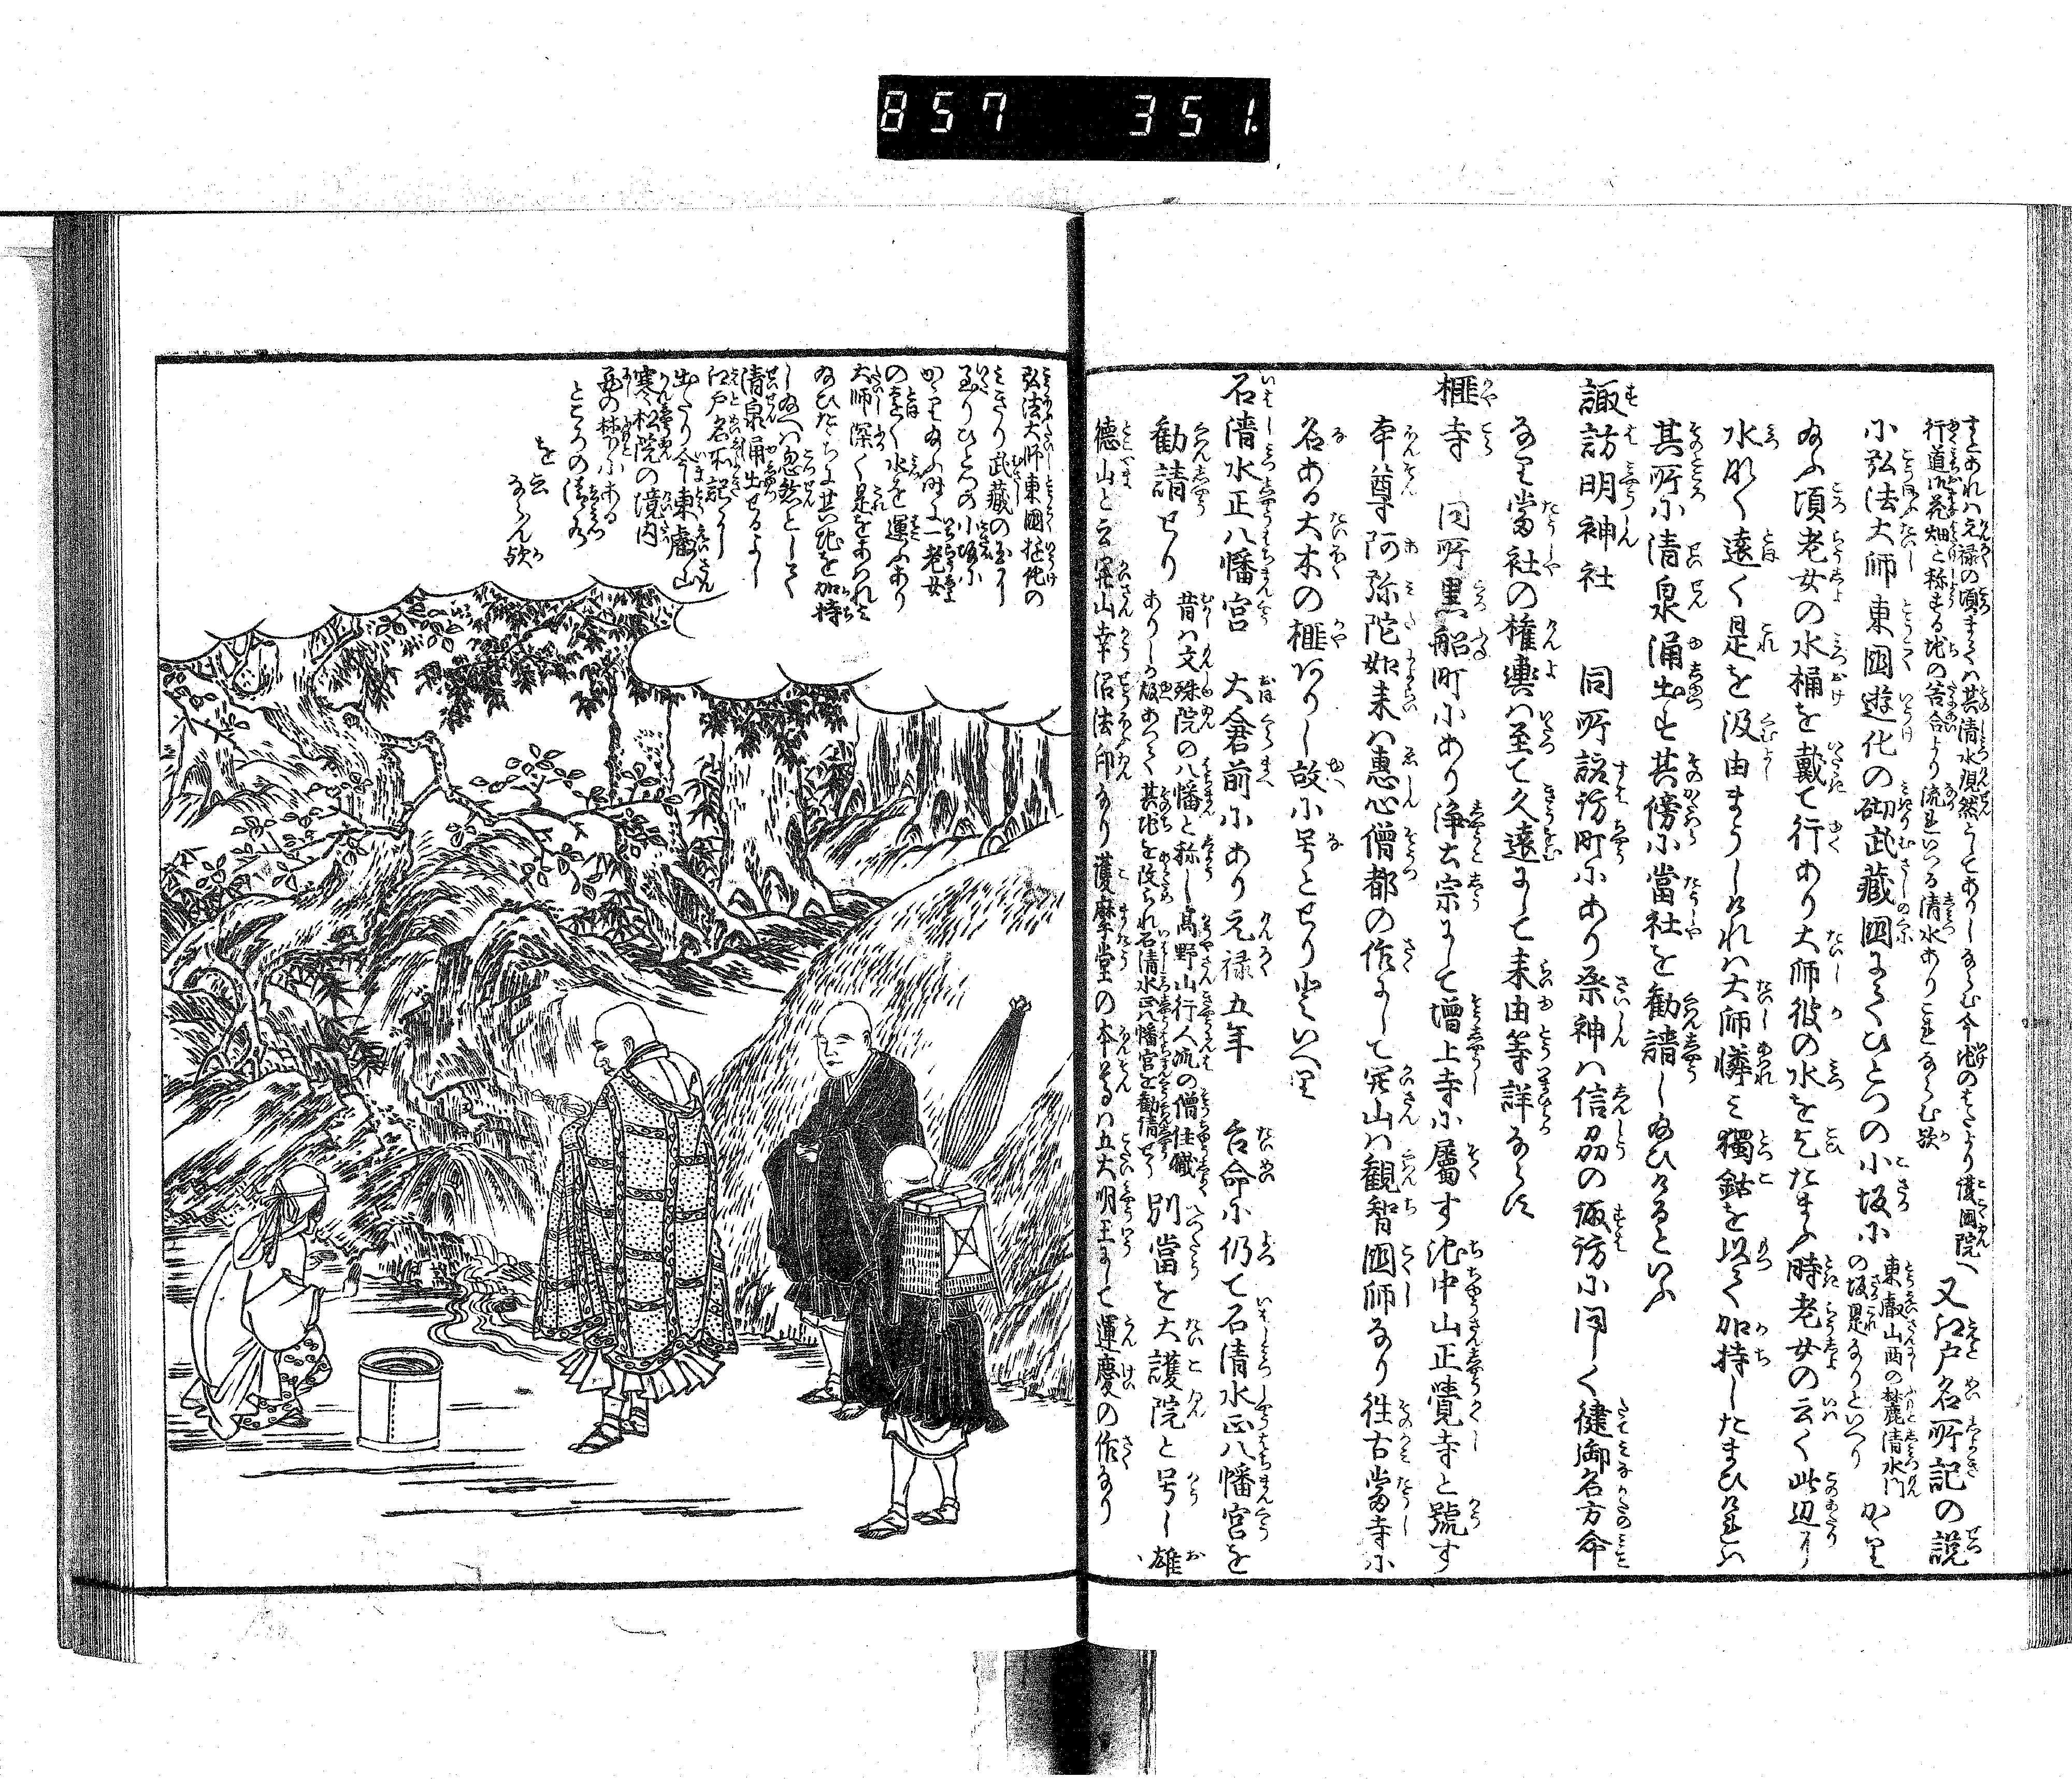 857 351.
すとあれハ元禄の頃まてハ其清水現然としてありしならむ今池のはたより護國院へ
行道御花畑と称する地の筈合より流れいつる清水ありこれならむ歟
又江戸名所記の説
に弘法大師東國遊化の砌武藏國にてひとつの小坂に
東叡山西の麓清水門
の坂是なりといへり
かゝり
給ふ頃老女の水桶を戴て行あり大師彼の水を乞たまふ時老女の云く此辺り
水なく遠く是を汲由まうしけれハ大師憐ミ獨鈷を以て加持したまひけれハ
其所に清泉涌出せり其傍に當社を勧請し給ひけるといふ
諏訪明神社 同所諏訪町にあり祭神ハ信刕の諏訪に同しく健御名方命
なり當社の権輿ハ至て久遠にして来由等詳ならす
榧寺 同所黒船町にあり浄土宗にして増上寺に屬す池中山正覺寺と號す
本尊阿弥陀如来ハ惠心僧都の作にして開山ハ観智國師なり往古當寺に
名ある大木の榧ありし故に号とせりといへり
石清水正八幡宮 大倉前にあり元禄五年 台命に仍て石清水正八幡宮を
勧請せり
昔ハ文殊院の八幡と称し高野山行人派の僧住職
ありしか故あつて其地を改られ石清水正八幡宮を勧請せり
別當を大護院と号し雄
徳山と云開山幸沼法印なり護摩堂の本尊ハ五大明王にして運慶の作なり
弘法大師東國遊化の
みきり武藏の國に
至りひとつの小坂に
かゝり給ふ時に一老女
の遠く水を運ふあり
大師深く是をあわれミ
給ひたちに其地を加持
し給へハ忽然として
清泉涌出せるよし
江戸名所記に
出たり今東叡山
寒松院の境内
車の林下にある
ところの清水
を云
ならん歟